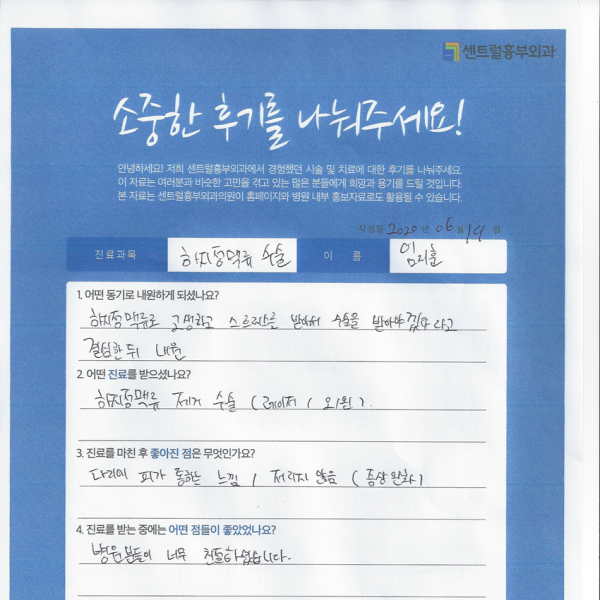 센트럴흉부외과
소중한 후기를 나눠주세요!
안녕하세요! 저희 센트럴흉부외과에서 경험했던 시술 및 치료에 대한 후기를 나눠주세요.
이 자료는 여러분과 비슷한 고민을 겪고 있는 많은 분들에게 희망과 용기를 드릴 것입니다.
본 자료는 센트럴흉부외과의원이 홈페이지와 병원 내부 홍보자료로도 활용될 수 있습니다.
작성일 2020 년 06 월 19 일
진료과목 하지정맥류 수술 이 름 임지훈
1. 어떤 동기로 내원하게 되셨나요?
하지정맥류로 고생하고 스트레스를 받아서 수술을 받아야겠다 라고
결심한 뒤 내원
2. 어떤 진료를 받으셨나요?
하지정맥류 제거 수술 (레이저 )
3. 진료를 마친 후 좋아진 점은 무엇인가요?
다리에 피가 통하는 느낌 / 저리지 않음 (증상 완화)
4. 진료를 받는 중에는 어떤 점들이 좋았었나요?
병원분들이 너무 친절하셨습니다.